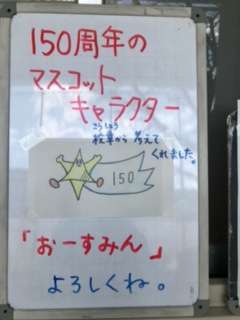 150周年の
マスコット
キャラクター
こうしょう
校章から 考えて
くれました。
150
「おーすみん」
よろしくね。